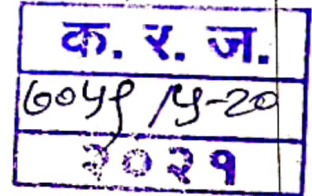 क. र. ज.
७०५९ /५-२०
२०२१